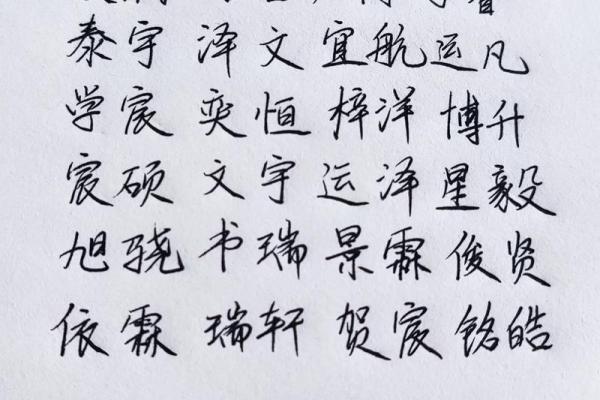 泰宇 泽文 宜航 运凡
学宸 奕恒 梓洋 博升
宸硕 文宇 运泽 星毅
旭骁 书瑞 景霖 俊贤
依霖 瑞轩 贺宸 铭皓